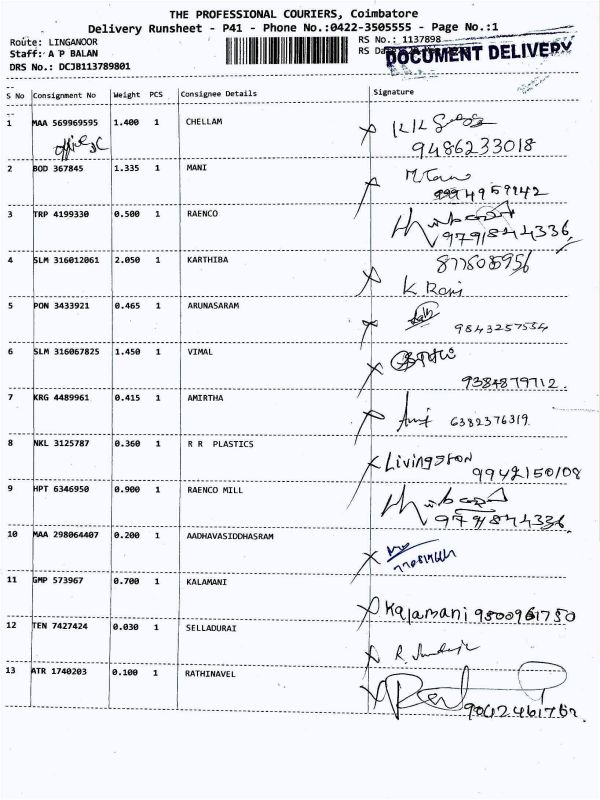 THE PROFESSIONAL COURIERS, Coimbatore
Delivery Runsheet - P41 - Phone No.:0422-3505555 - Page No.:1
Route: LINGANOOR RS No.: 1137898
Staff: A P BALAN RS
DRS No.: DCJB113789801
DOCUMENT DELIVERY
S No Consignment No Weight PCS Consignee Details Signature
1 MAA 569969595 1.400 1 CHELLAM
9486233018
2 BOD 367845 1.335 1 MANI
3 TRP 4199330 0.500 1 RAENCO
9791844336
4 SLM 316012061 2.050 1 KARTHIBA
K Rani
5 PON 3433921 0.465 1 ARUNASARAM
9843257534
6 SLM 316067825 1.450 1 VIMAL
9384879712.
7 KRG 4489961 0.415 1 AMIRTHA
6382376319
8 NKL 3125787 0.360 1 R R PLASTICS
Livingston
9942150108
9 HPT 6346950 0.900 1 RAENCO MILL
9791844336
10 MAA 298064407 0.200 1 AADHAVASIDDHASRAM
11 GMP 573967 0.700 1 KALAMANI
Kalamani 9500961750
12 TEN 7427424 0.030 1 SELLADURAI
13 ATR 1740203 0.100 1 RATHINAVEL